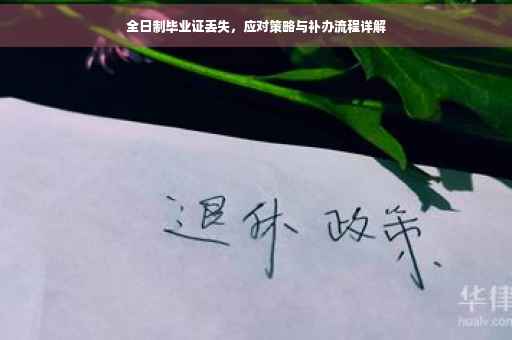 全日制毕业证丢失，应对策略与补办流程详解
退休 政策
华律
hualv.com